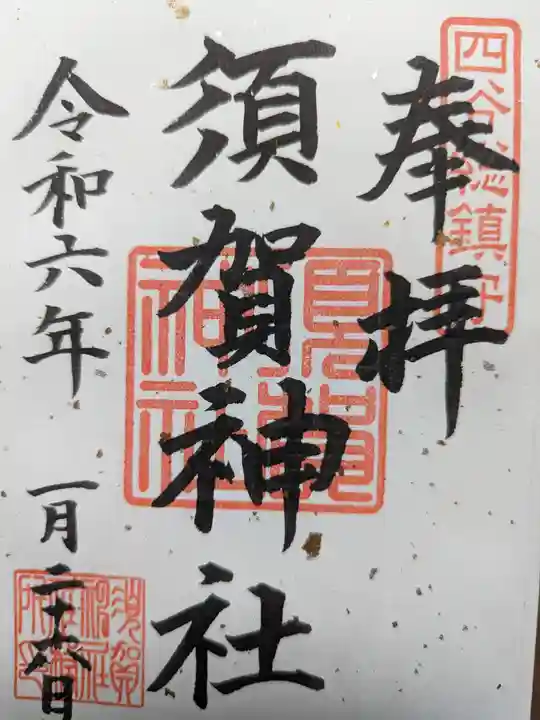 四谷総鎮守
奉拝
須賀神社
須賀神社
令和六年 一月二十六日